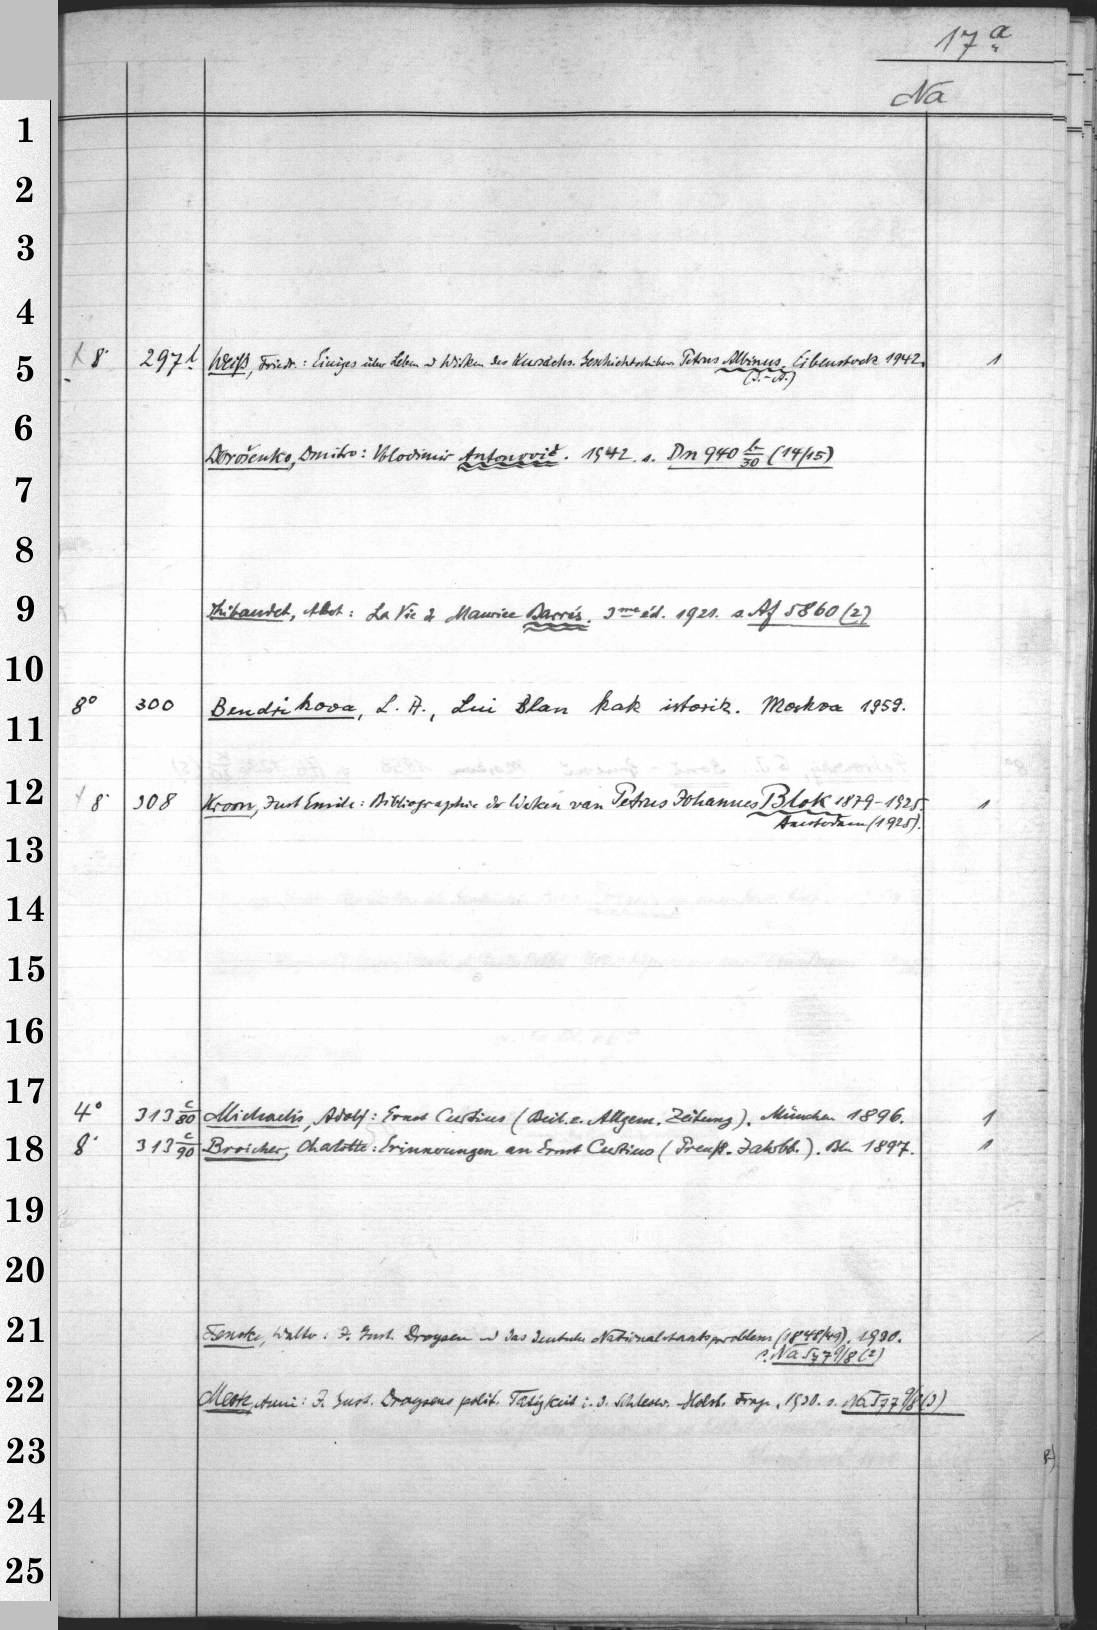 17 a
Na
1
2
3
4
5
8° 297 l Weiß, Friedr.: Einiges über Leben u Wirken des Kursächs. Geschichtschreibers Petrus Albinus. Eibenstock 1942. 1
6
Dorošenko, Dmitro: Volodimir Antonovič. 1942 s. Dn 940 b/30 (14/15)
7
8
9
Thibaudet, Albert: La Vie de Maurice Barrès. 3me éd. 1921. s. Af 5860 (2)
10
8° 300 Bendrikova, L. A., Lui Blan kak istorik. Moskva 1959.
11
12
8° 308 Kroon, Just Emile: Bibliographie der werken van Petrus Johannes Blok 1879-1925. 1
Amsterdam (1925).
13
14
15
16
17
4° 313 c/80 Michaelis, Adolf: Ernst Curtius (Beil. z. Allgem. Zeitung). München 1896. 1
18
8° 313 c/90 Broicher, Charlotte: Erinnerungen an Ernst Curtius (Preuß. Jahrbb.). Bln 1897. 1
19
20
21
Fenske, Walter: J. Gust. Droysen u das deutsche Nationalstaatsproblem (1848/49). 1930.
s. Na 577 g/8 (2)
22
Meetz, Anni: J. Gust. Droysens polit. Tätigkeit i. d. Schlesw.-Holst. Frage. 1930. s. Na 577 g/8 (3)
23
24
25